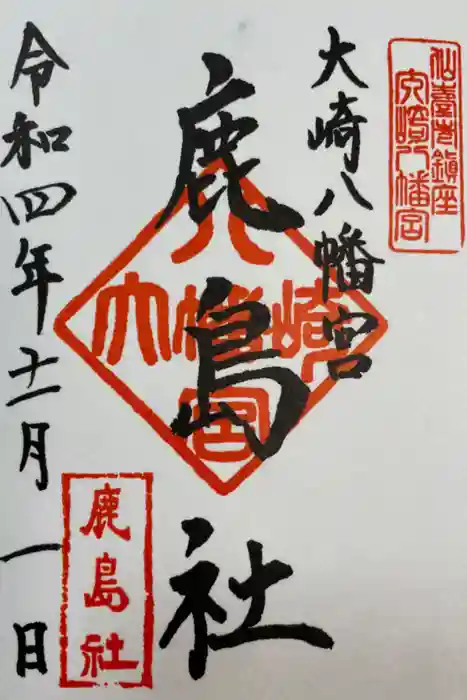 仙臺市鎮座
大崎八幡宮
大崎八幡宮
鹿島社
八
大幡崎
宮
鹿島社
令和四年十一月一日